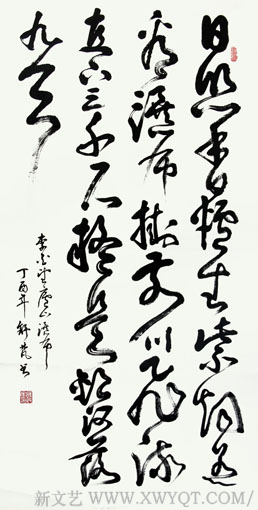 日照香爐生紫烟遥
看瀑布掛前川飞流
直下三千尺疑是银河落
九天
李白望庐山瀑布
丁酉年
新文艺 - WWW.XWYQT.COM/